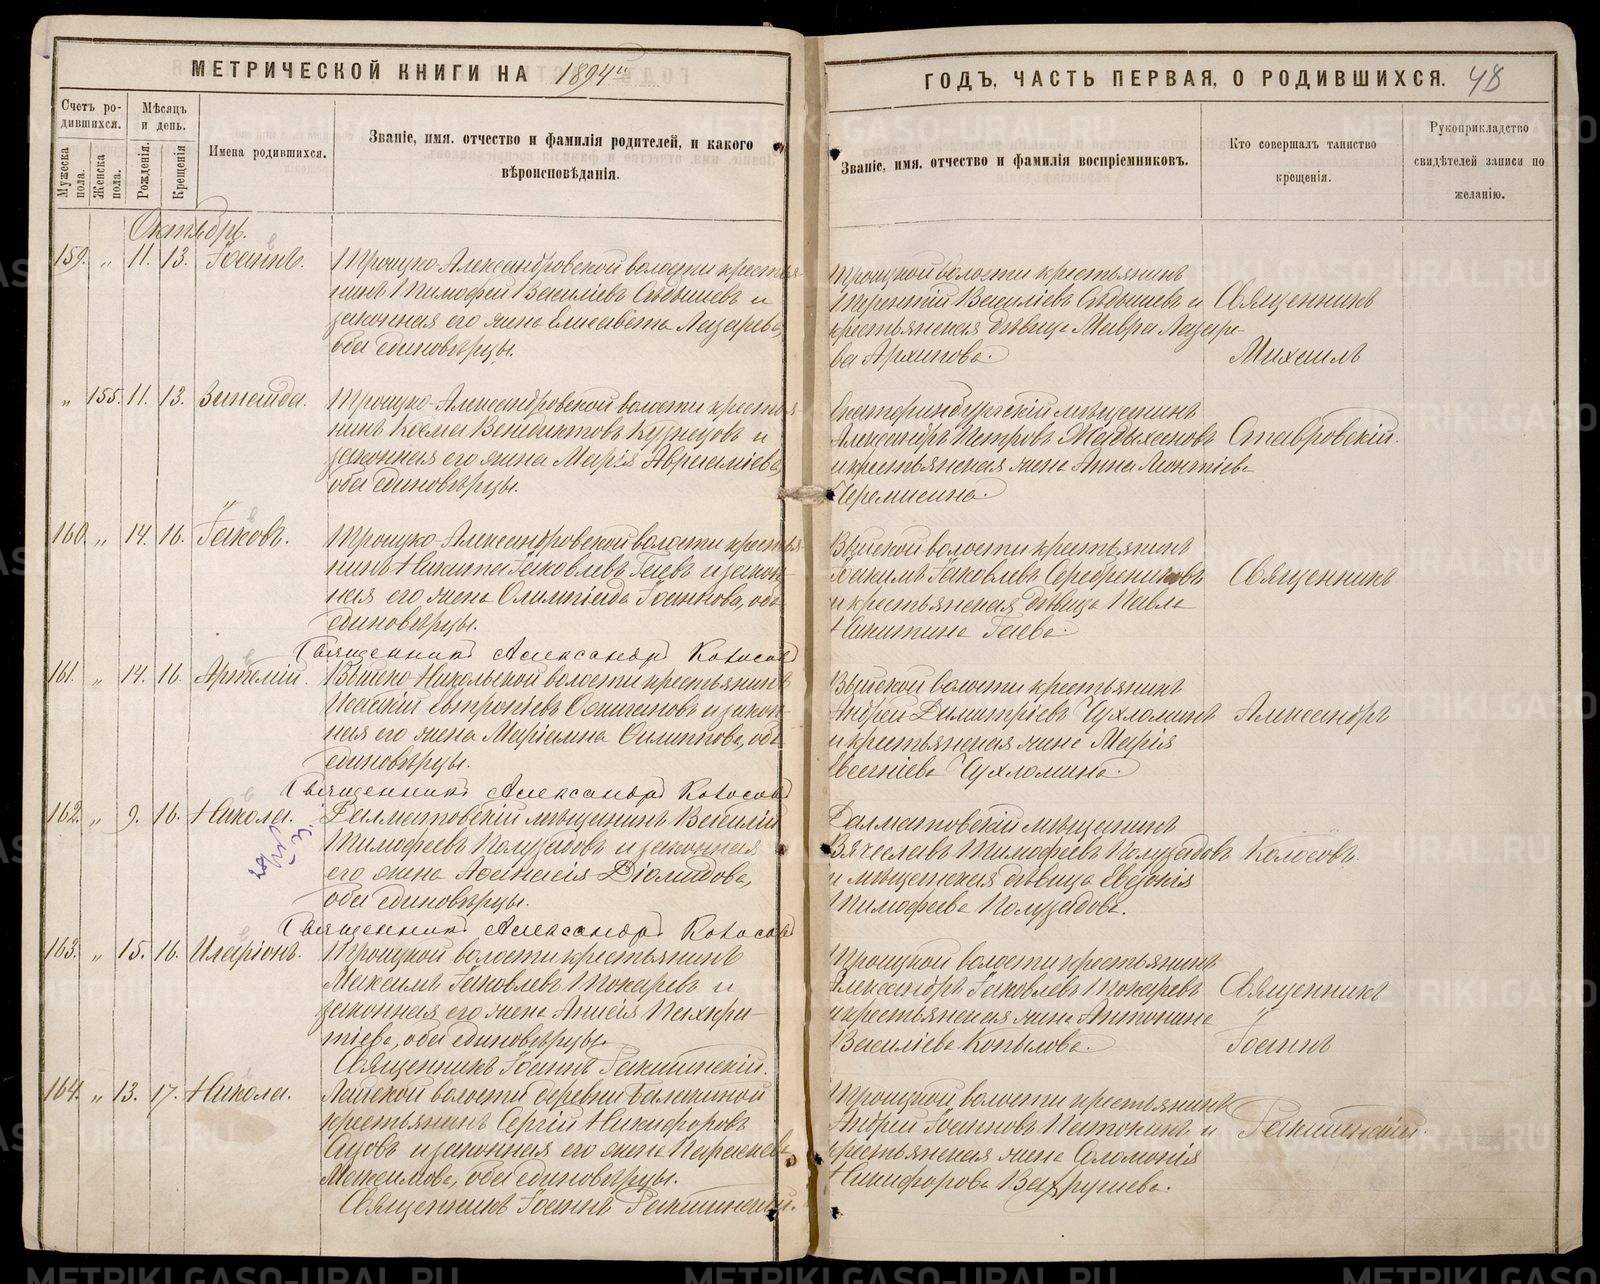 МЕТРИЧЕСКОЙ КНИГИ НА 1894й
Счетъ родившихся.
Мужеска пола.
Женска пола.
Мѣсяцъ и день.
Рожденія.
Крещенія
Имена родившихся.
Званіе, имя. отчество и фамилія родителей, и какого
вѣроисповѣданія.
Октябрь.
159. „ 11. 13. Іоаннъ.
Троицко-Александровской волости крестья-
нинъ Тимофей Василіевъ Сѣдышевъ и
законная его жена Елисавета Лазарева,
оба единовѣрцы.
„ 155. 11. 13. Зинаида.
Троицко-Александровской волости крестья-
нинъ Косма Венедиктовъ Кузнецовъ и
законная его жена Марія Аврааміева,
оба единовѣрцы.
160. „ 14. 16. Іаковъ.
Троицко-Александровской волости крестья-
нинъ Никита Іаковлевъ Гаевъ и закон-
ная его жена Олимпіада Іоаннова, оба
единовѣрцы.
Священникъ Александръ Колосовъ
161. „ 14. 16. Артемій.
Выйско-Никольской волости крестьянинъ
законная его жена Маріамна Филиппова, оба
единовѣрцы.
Священникъ Александръ Колосовъ
162. „ 9. 16. Никола.
Далматовскій мѣщанинъ Василій
Тимофеевъ Полуздовъ и законная
его жена Аѳанасія Діомидова,
оба единовѣрцы.
Священникъ Александръ Колосовъ
163. „ 15. 16. Иларіонъ.
Троицкой волости крестьянинъ
Максимъ Іаковлевъ Токаревъ и
законная его жена Анисія Панхари-
тіева, оба единовѣрцы.
Священникъ Іоаннъ
164. „ 13. 17. Никола.
Лайской волости деревни Балакиной
крестьянинъ Сергій Никифоровъ
и законная его жена Параскева
Максимова, оба единовѣрцы.
Священникъ Іоаннъ
ГОДЪ, ЧАСТЬ ПЕРВАЯ, О РОДИВШИХСЯ. 48
Званіе, имя. отчество и фамилія воспріемниковъ.
Кто совершалъ таинство
крещенія.
Рукоприкладство
свидѣтелей записи по
желанію.
Троицкой волости крестьянинъ
Терентій Василіевъ Сѣдышевъ и
крестьянская дѣвица Мавра Лазаре-
ва Архипова.
Священникъ
Михаилъ
Екатеринбургскій мѣщанинъ
Александръ Петровъ
и крестьянская жена Анна Леонтіева
Черемисина.
Ставровскій.
Выйской волости крестьянинъ
Іоакимъ Іаковлевъ Серебрениковъ
и крестьянская дѣвица Павла
Никитина Гаева.
Священникъ
Выйской волости крестьянинъ
Андрей Димитріевъ Чухломинъ
и крестьянская жена Марія
Евгеніева Чухломина.
Александръ
Далматовскій мѣщанинъ
Вячеславъ Тимофеевъ Полуздовъ
и мѣщанская дѣвица Евдокія
Тимофеева Полуздова.
Колосовъ.
Троицкой волости крестьянинъ
Александръ Іаковлевъ Токаревъ
и крестьянская жена Антонина
Василіева Копылова.
Священникъ
Іоаннъ
Троицкой волости крестьянинъ
Андрей Іоанновъ Патокинъ и
крестьянская жена Соломонія
Никифорова Вахрушева.